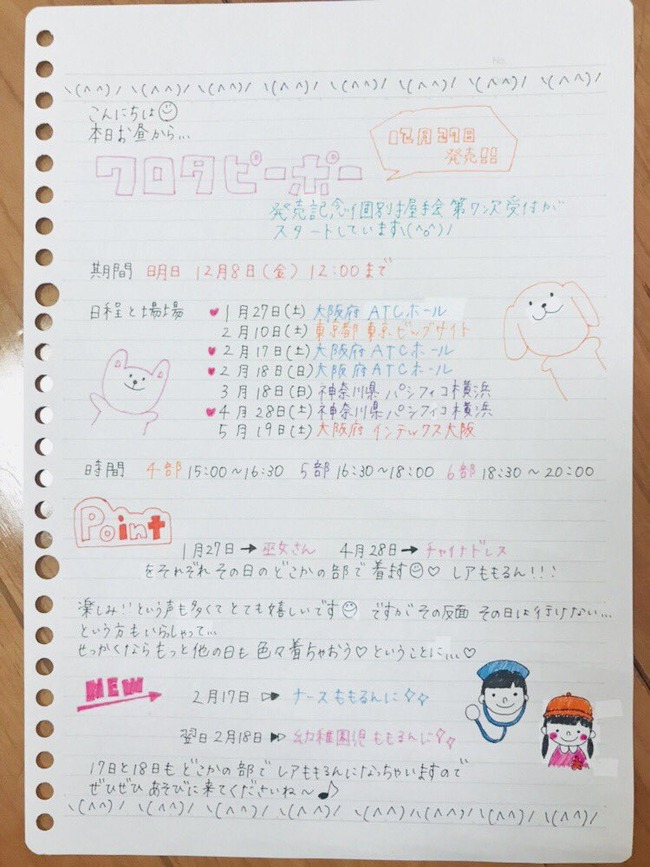 No.
\(^^)/ \(^^)/ \(^^)/ \(^^)/ \(^^)/ \(^^)/ \(^^)/ \(^^)/
こんにちは☺
本日お昼から…
12月27日
発売!!
クロタピーポー
発売記念個別握手会 第7次受付が
スタートしています\(^o^)/
期間 明日 12月8日(金) 12:00まで
日程と場場
♥1月27日(土) 大阪府 ATCホール
2月10日(土) 東京都 東京ビッグサイト
♥2月17日(土) 大阪府 ATCホール
♥2月18日(日) 大阪府 ATCホール
3月18日(日) 神奈川県 パシフィコ横浜
♥4月28日(土) 神奈川県 パシフィコ横浜
5月19日(土) 大阪府 インテックス大阪
時間 4部 15:00〜16:30 5部 16:30〜18:00 6部 18:30〜20:00
Point
1月27日→巫女さん 4月28日→チャイナドレス
をそれぞれその日のどこかの部で着ます☺♡ レアももるん!!!
楽しみ!!という声も多くてとても嬉しいです☺ ですがその反面 その日は行けない…
という方もいらっしゃって…
せっかくならもっと他の日も色々着ちゃおう♡ということに…♡
NEW
2月17日 ▷▶ ナースももるんに✧✧
翌日2月18日 ▷▶ 幼稚園児ももるんに✧✧
17日と18日もどこかの部でレアももるんになっちゃいますので
ぜひぜひあそびに来てくださいね〜♪
\(^^)/ \(^^)/ \(^^)/ \(^^)/ \(^^)/ \(^^)/ \(^^)/ \(^^)/